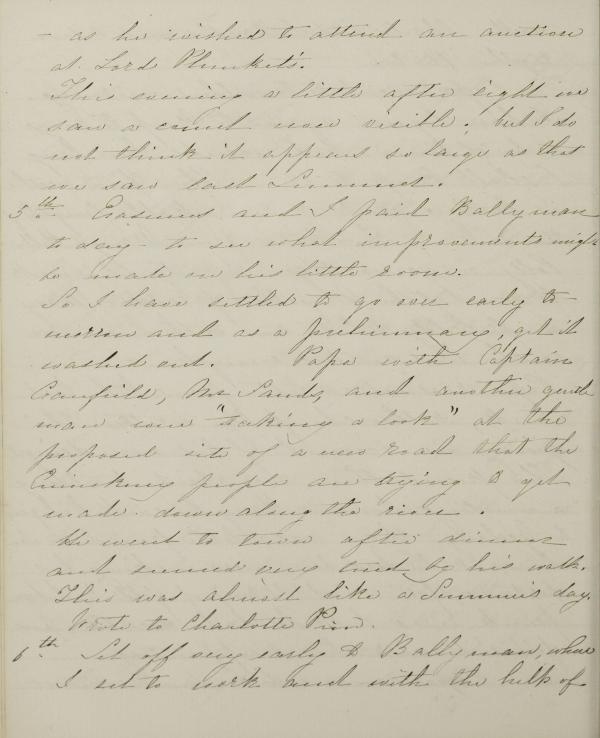 - as he wished to attend an auction
at Lord Plunket's.
This evening a little after eight we
saw a comet now visible; but I do
not think it appears so large as that
we saw last Summer.
5th. Erasmus and I paid Ballyman
to day - to see what improvements might
be made on his little room.
So I have settled to go over early to-
morrow and as a preliminary, get it
washed out. Papa with Captain
Caulfield, Mr Sands, and another gentle
man were "taking a look" at the
proposed site of a new road that the
people are trying to get
made down along the river.
He went to town after dinner
and seemed very tired by his walk.
This was almost like a Summer's day.
Wrote to Charlotte
6th Set off very early to Ballyman, where
I set to work and with the help of